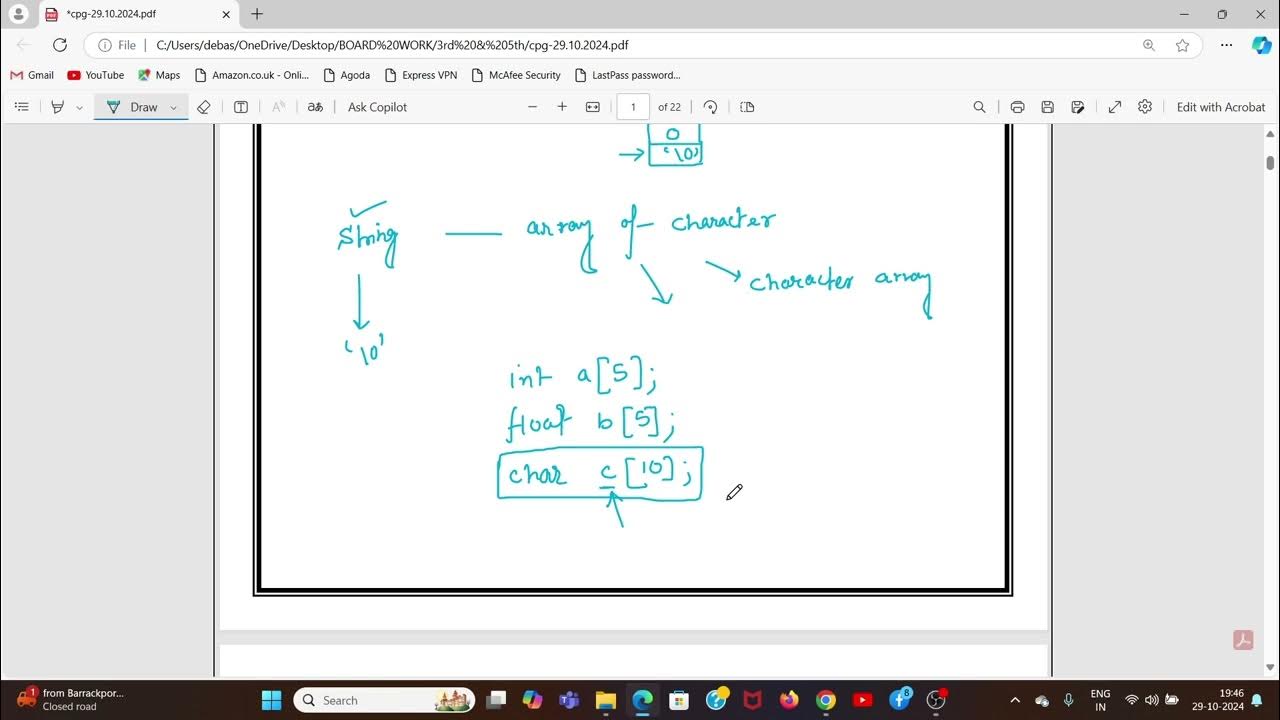 *cpg-29.10.2024.pdf
File
C:/Users/debas/OneDrive/Desktop/BOARD%20WORK/3rd%20&%205th/cpg-29.10.2024.pdf
Gmail
YouTube
Maps
Amazon.co.uk - Onli...
Agoda
Express VPN
McAfee Security
LastPass password...
Draw
Ask Copilot
1
of 22
Edit with Acrobat
0
'\0'
String — array of character
character array
'\0'
int a[5];
float b[5];
char c[10];
1
from Barrackpor...
Closed road
Search
8
ENG
IN
19:46
29-10-2024